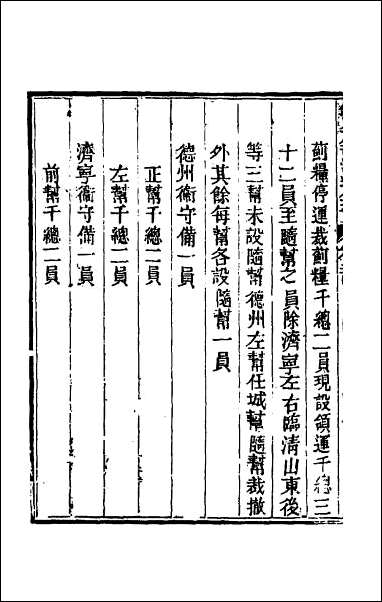 薊糧停運裁薊糧千總二員現設領運千總三
十二員至隨幫之員除濟寧左右臨清山東後
等三幫未設隨幫德州左幫任城幫隨幫裁撤
外其餘每幫各設隨幫一員
德州衛守備一員
正幫千總二員
左幫千總二員
濟寧衛守備一員
前幫千總二員